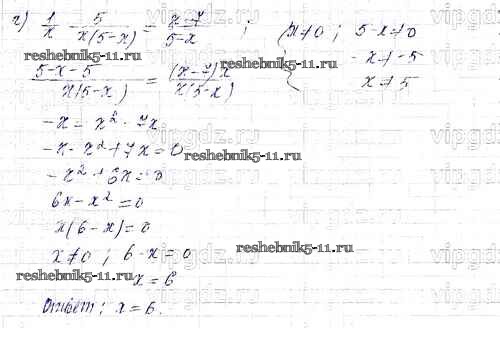 г) 1/x - 5/x(5-x) = x-7/5-x ; { x≠0 ; 5-x≠0
-x≠-5
x≠5
reshebnik5-11.ru reshebnik5-11.ru
5-x-5/x(5-x) = (x-7)x/x(5-x)
-x = x² - 7x
-x - x² + 7x = 0
reshebnik5-11.ru
-x² + 6x = 0
6x - x² = 0
x(6-x) = 0
x≠0 ; 6-x = 0
reshebnik5-11.ru
x = 6
reshebnik5-11.ru
Ответ: x = 6.
vipgdz.ru